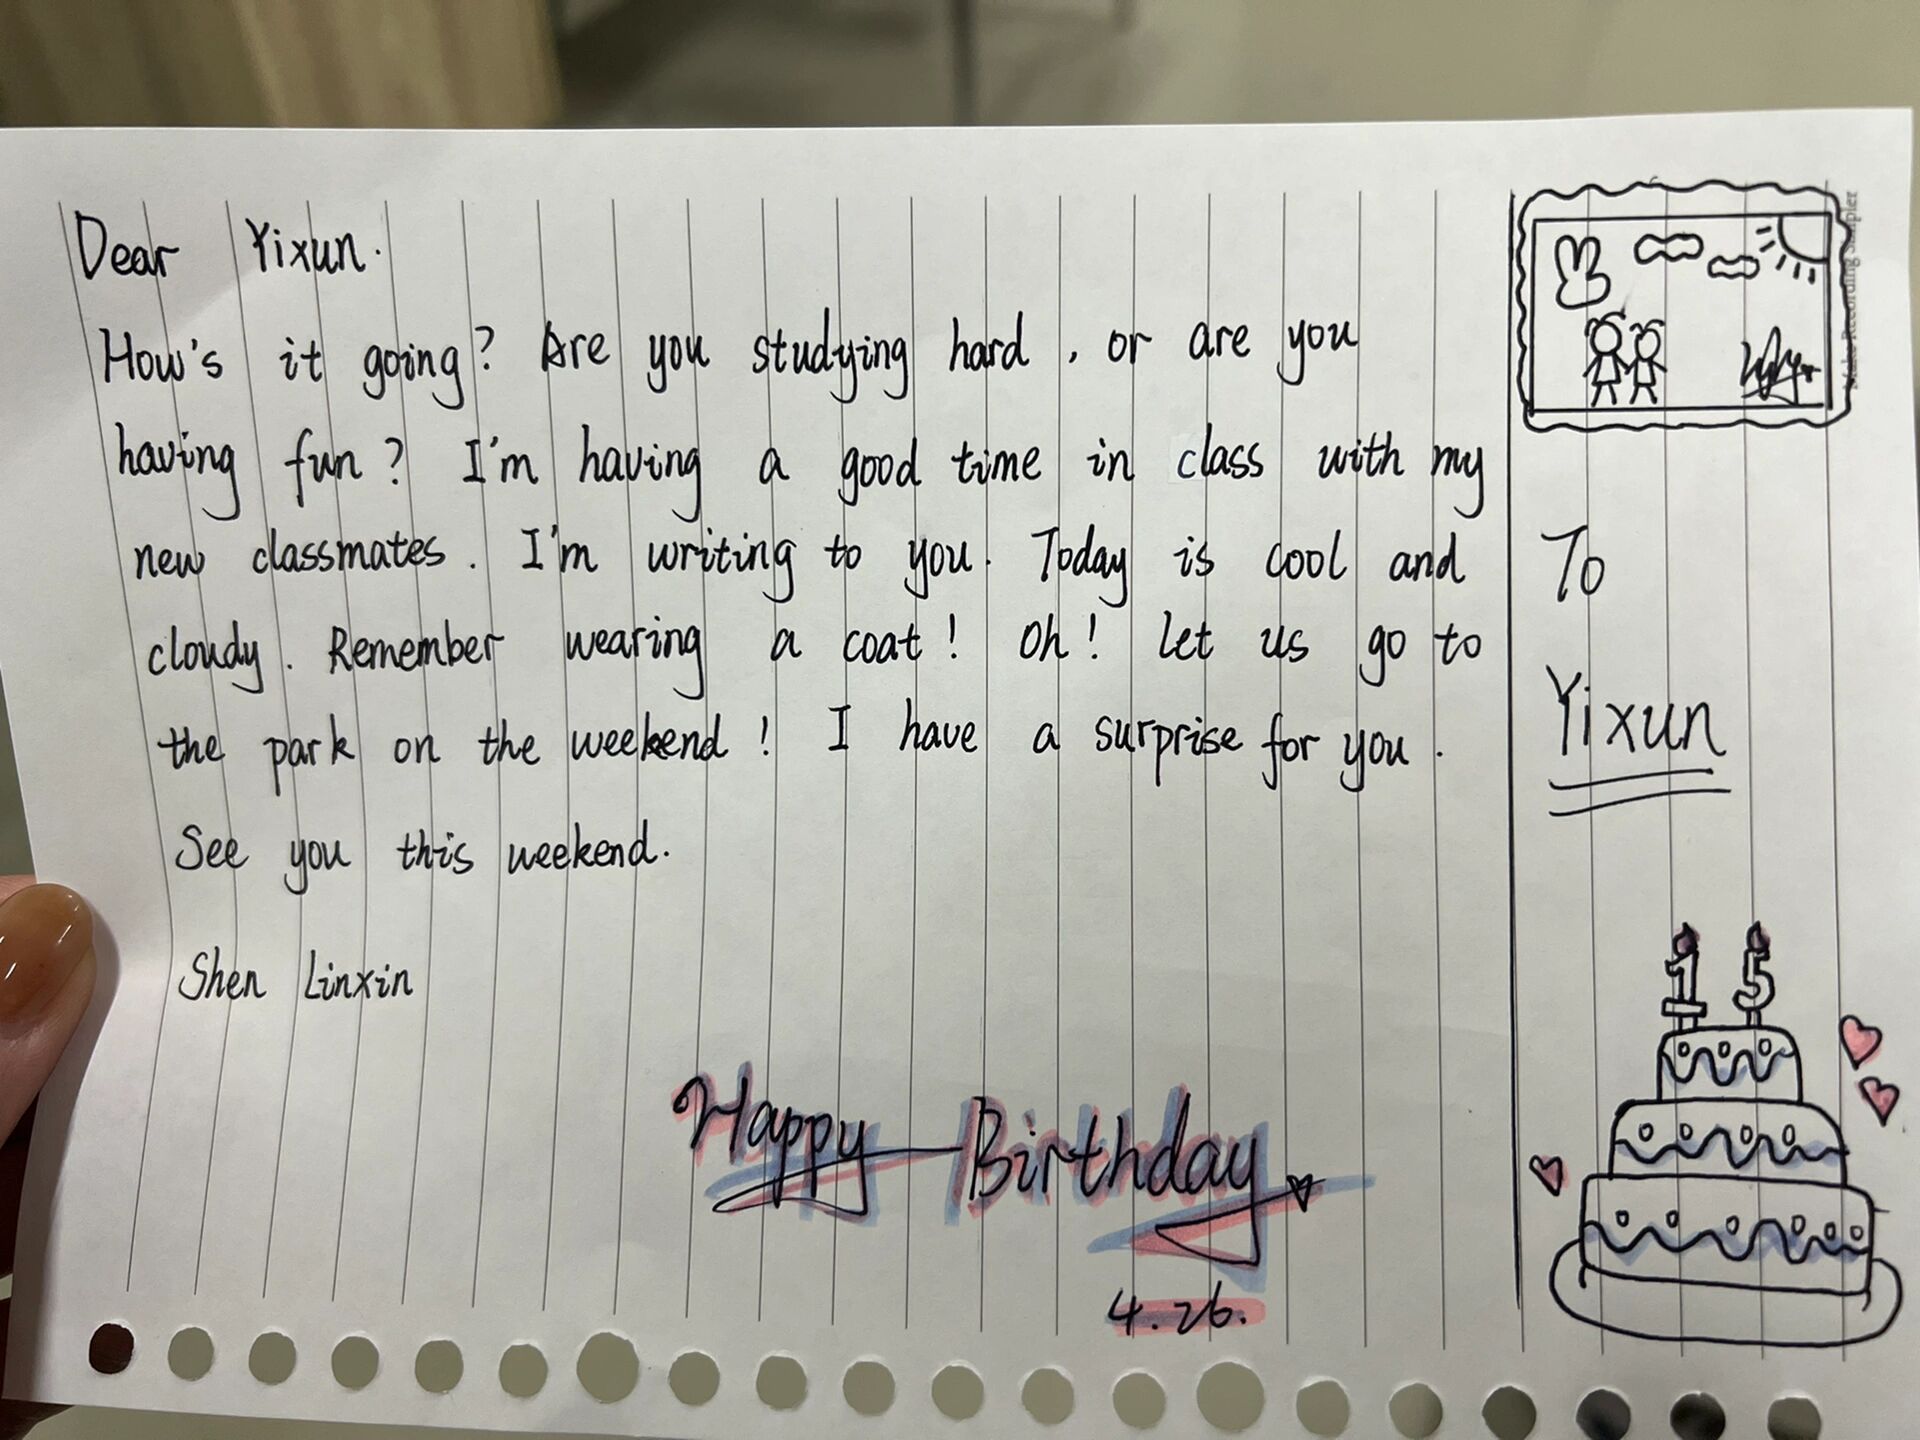 Dear Yixun.
How's it going? Are you studying hard, or are you
having fun? I'm having a good time in class with my
new classmates. I'm writing to you. Today is cool and
cloudy. Remember wearing a coat! Oh! Let us go to
the park on the weekend! I have a surprise for you.
See you this weekend.
Shen Linxin
Happy Birthday
4.26.
Make Recording Simpler
To
Yixun
15